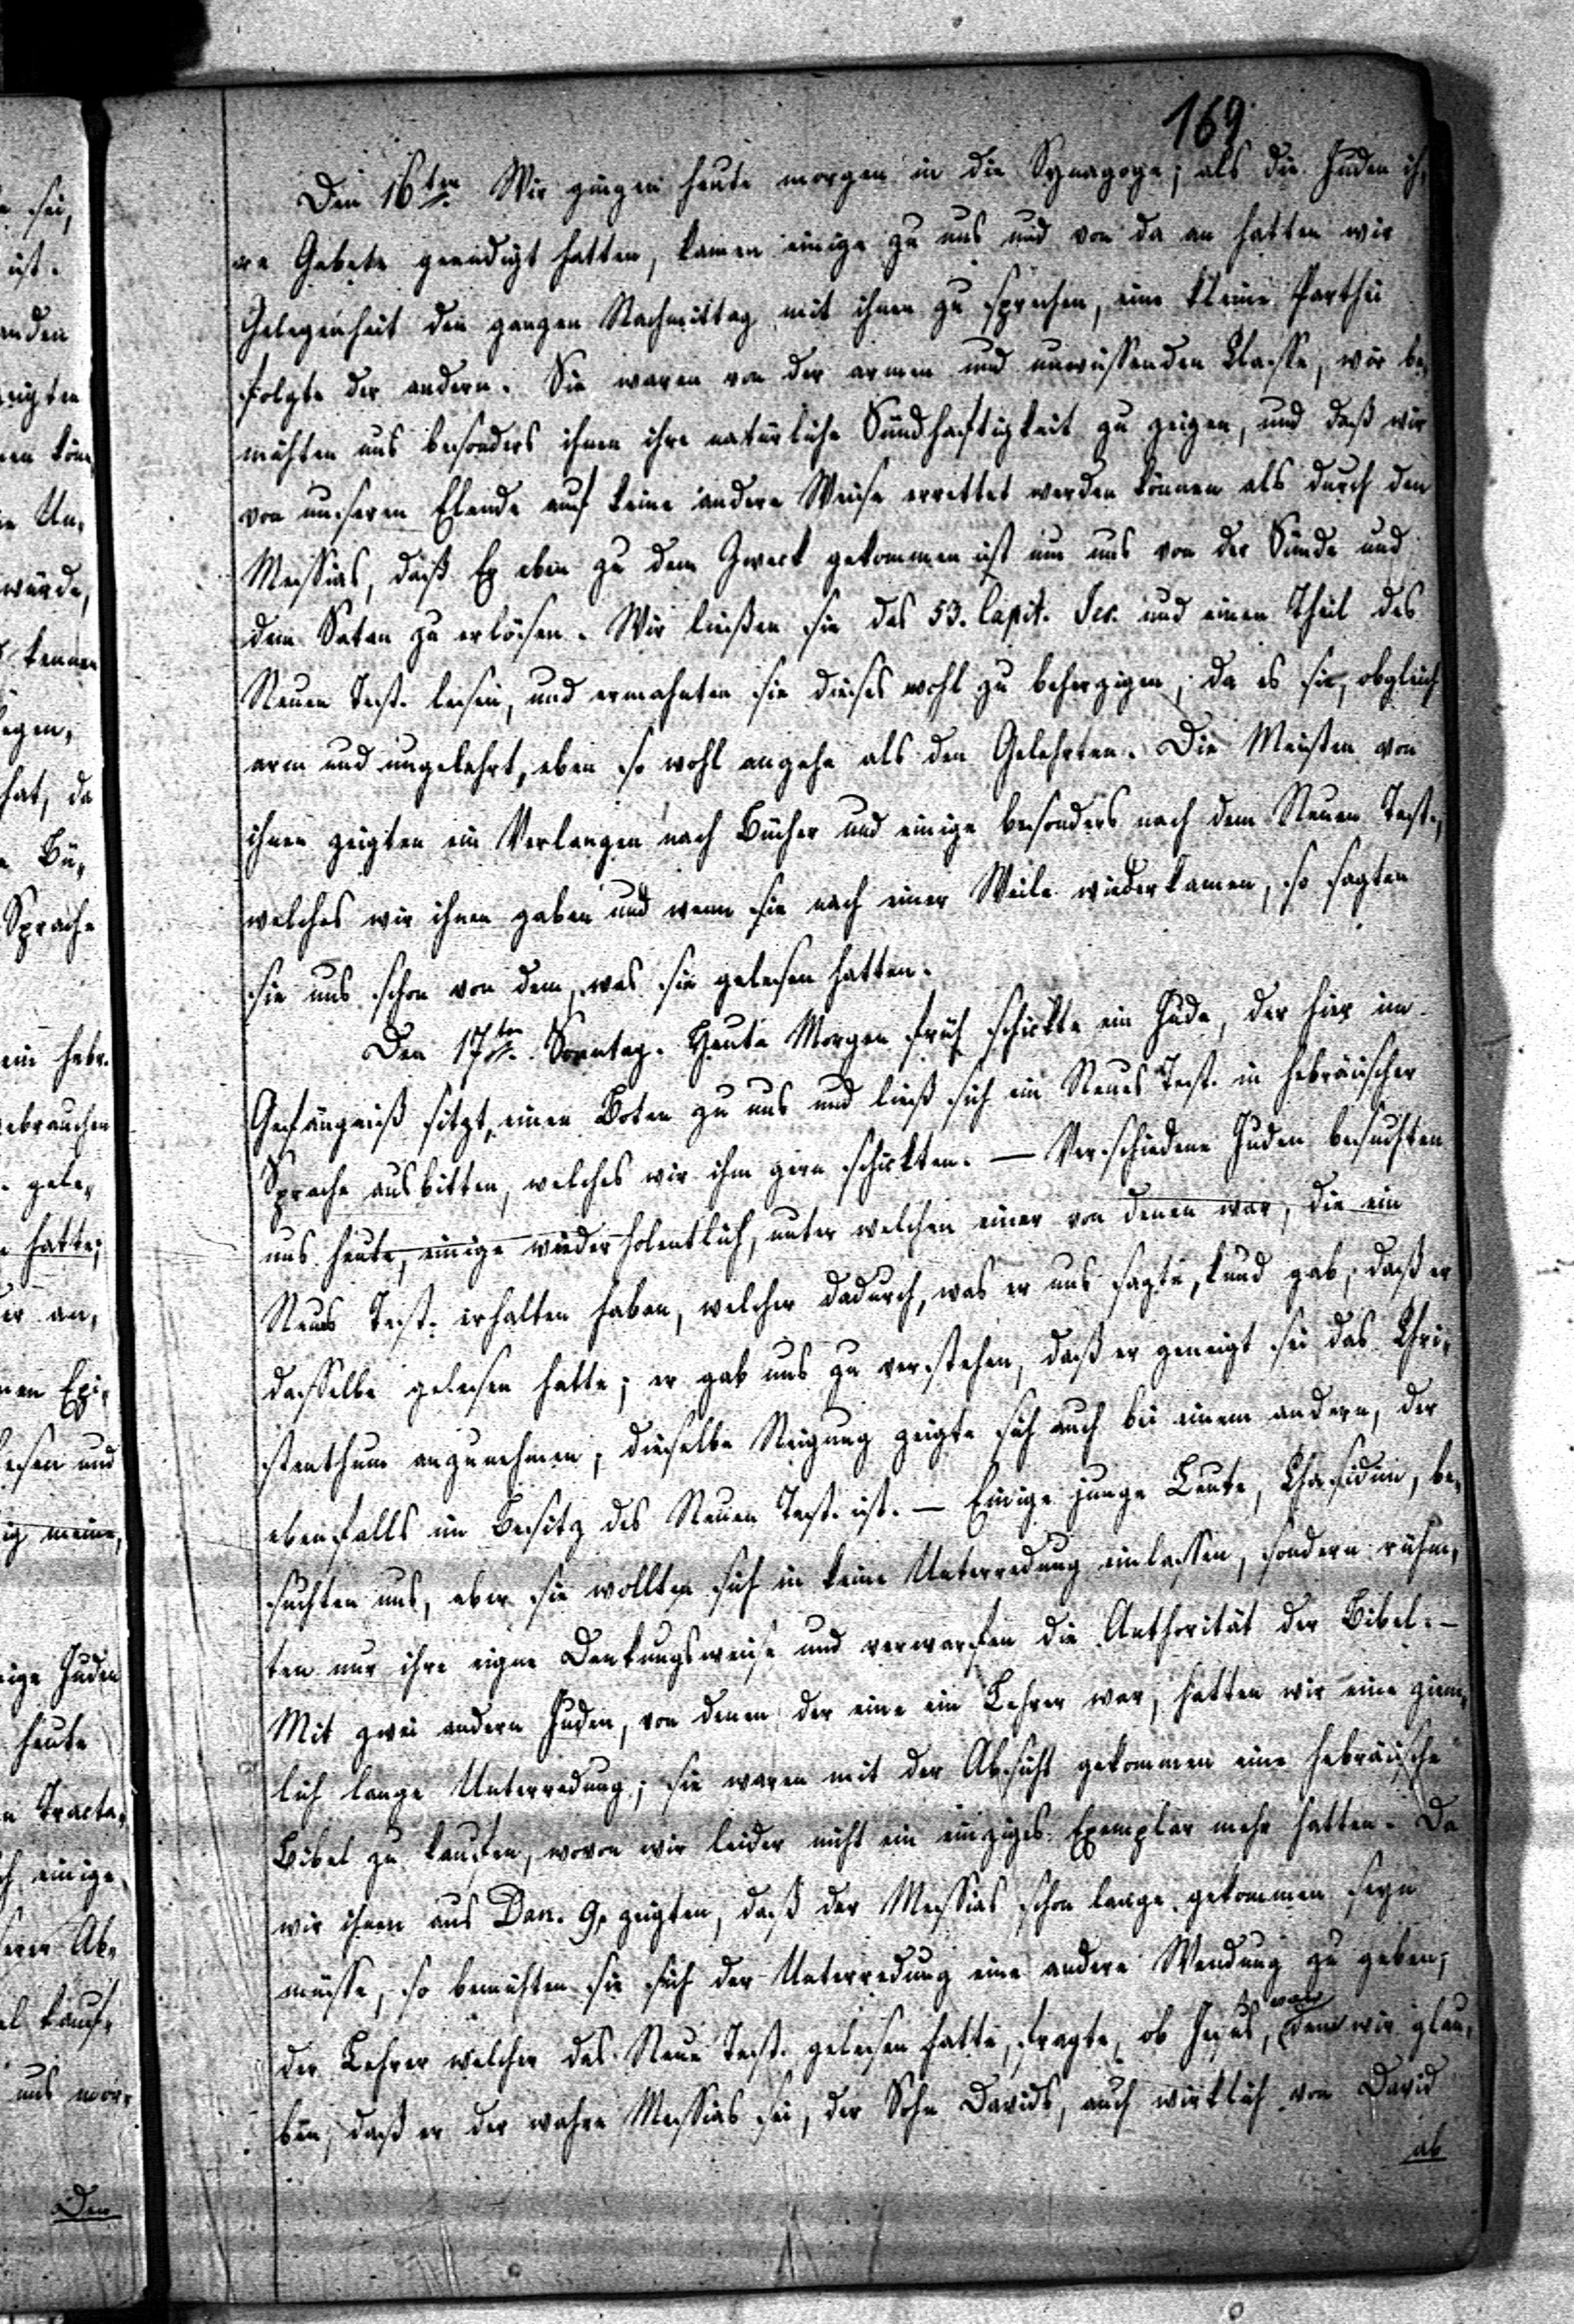 169.
Den 16ten. Wir gingen heute morgen in die Synagoge; als die Juden ih,
re Gebete geendigt hatten, kamen einige zu uns und von da an hatten wir
Gelegenheit den ganzen Nachmittag mit ihnen zu sprechen, eine kleine Parthei
folgte der andern. Sie waren von der armen und unwissenden Classe, wir be,
mühten uns besonders ihnen ihre natürliche Sündhaftigkeit zu zeigen, und daß wir
von unserem Elende auf keine andere Weise errettet werden können als durch den
Messias, daß Er eben zu dem Zweck gekommen ist um uns von der Sünde und
dem Satan zu erlösen. Wir ließen sie das 53. Capit. Jes. und einen Theil des
Neuen Test. lesen, und ermahnten sie dieses wohl zu beherzigen, da es sie, obgleich
arm und ungelehrt, eben so wohl angehe als den Gelehrten. Die Meisten von
ihnen zeigten ein Verlangen nach Bücher und einige besonders nach dem Neuen Test.,
welches wir ihnen gaben und wenn sie nach einer Weile wiederkamen, so sagten
sie uns schon von dem, was sie gelesen hatten.
Den 17ten. Sonntag. Heute Morgen früh schickte ein Jude, der hier im
Gefängniß sitzt, einen Boten zu uns und ließ sich ein Neues Test. in hebräischer
Sprache ausbitten, welches wir ihm gern schickten. — Verschiedene Juden besuchten
uns heute, einige wiederholentlich, unter welchen einer von denen war, die ein
Neues Test. erhalten haben, welcher dadurch, was er uns sagte, kund gab, daß er
dasselbe gelesen hatte; er gab uns zu verstehen, daß er geneigt sei das Chri,
stenthum anzunehmen; dieselbe Neigung zeigte sich auch bei einem andern, der
ebenfalls im Besitz des Neuen Test. ist. — Einige junge Leute, Chasidim, be,
suchten uns, aber sie wollten sich in keine Unterredung einlassen, sondern rühm,
ten nur ihre eigne Denkungsweise und verwarfen die Authorität der Bibel. —
Mit zwei andern Juden, von denen der eine ein Lehrer war, hatten wir eine ziem,
lich lange Unterredung; sie waren mit der Absicht gekommen eine hebräische
Bibel zu kaufen, wovon wir leider nicht ein einziges Exemplar mehr hatten. Da
wir ihnen aus Dan. 9, zeigten, daß der Messias schon lange gekommen seyn
müsse, so bemühten sie sich der Unterredung eine andere Wendung zu geben;
der Lehrer welcher das Neue Test. gelesen hatte, fragte, ob Jesus, von dem wir glau,
ben, daß er der wahre Messias sei, der Sohn Davids, auch wirklich von David
ab